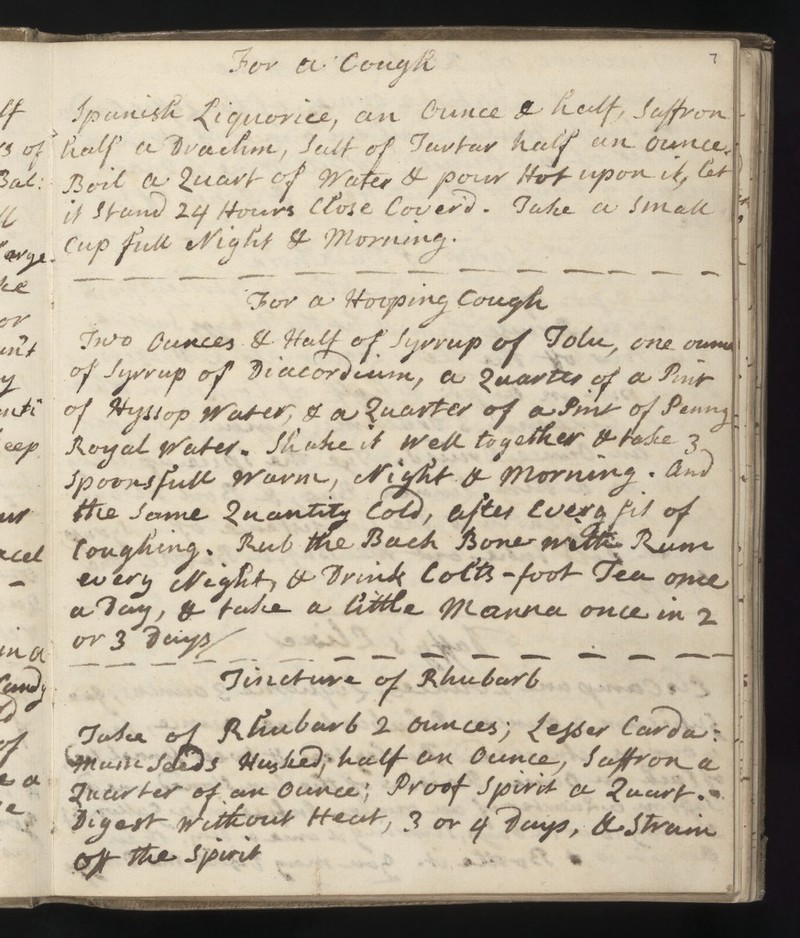 7
For a Cough
Spanish Liquorice, an Ounce & half, Saffron
half a Drachm, Salt of Tartar half an ounce.
Boil a Quart of Water & pour Hot upon it, let
it Stand 24 Hours Close Cover'd. Take a Small
Cup full Night & Morning.
For a Hooping Cough
Two Ounces & Half of Syrrup of Tolu, one ounce
of Syrrup of Diacordium, a Quarter of a Pint
of Hyssop Water, & a Quarter of a Pint of Penny
Royal Water. Shake it well together & take 3
Spoonsfull Warm, Night & Morning. And
the Same Quantity Cold, after Every fit of
Coughing. Rub the Back Bone with Rum
every Night, & Drink Colts-foot Tea once
a Day, & take a little Manna once in 2
or 3 Days
Tincture of Rhubarb
Take of Rhubarb 2 ounces; Lesser Carda:
mum Seeds Husked; half an Ounce, Saffron a
Quarter of an Ounce; Proof Spirit a Quart.
Digest without Heat, 3 or 4 Days, & Strain
off the Spirit